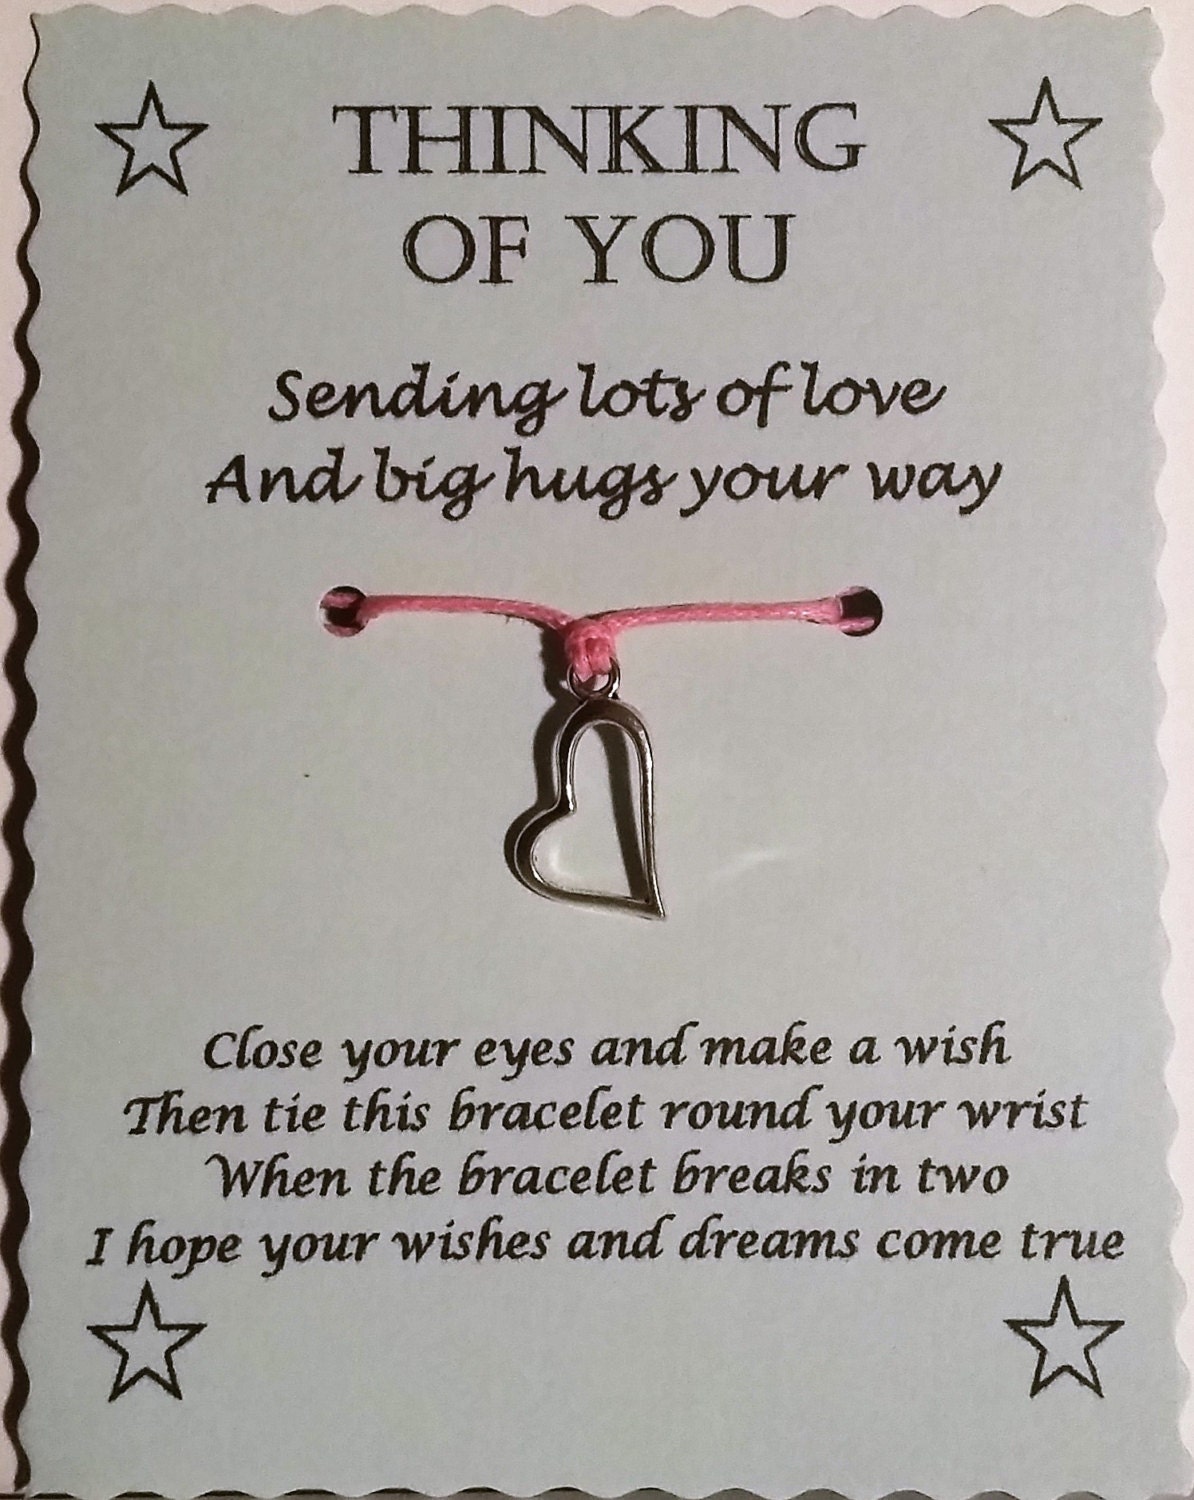 THINKING
OF YOU
Sending lots of love
And big hugs your way
Close your eyes and make a wish
Then tie this bracelet round your wrist
When the bracelet breaks in two
I hope your wishes and dreams come true